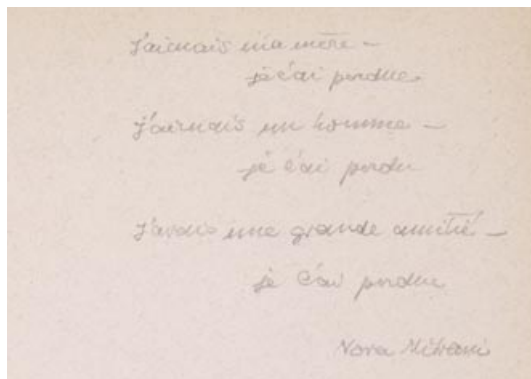 J'aimais ma mère –
je l'ai perdue
J'aimais un homme –
je l'ai perdu
J'avais une grande amitié –
je l'ai perdue
Nora Mitrani